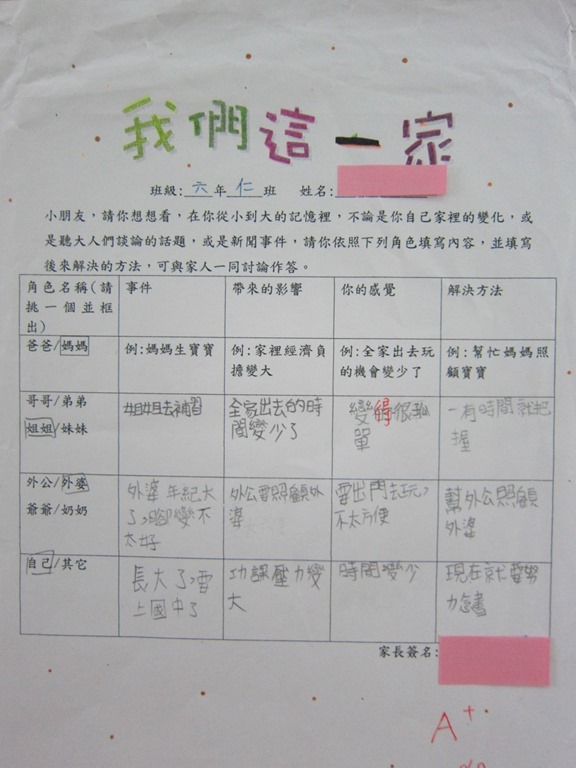 我們這一家
班級:六年仁班 姓名:
小朋友，請你想想看，在你從小到大的記憶裡，不論是你自己家裡的變化，或
是聽大人們談論的話題，或是新聞事件，請你依照下列角色填寫內容，並填寫
後來解決的方法，可與家人一同討論作答。
角色名稱(請挑一個並框出) 事件 帶來的影響 你的感覺 解決方法
爸爸/媽媽 例:媽媽生寶寶 例:家裡經濟負擔變大 例:全家出去玩的機會變少了 例:幫忙媽媽照顧寶寶
哥哥/弟弟 姐姐/妹妹 姐姐去補習 全家出去的時間變少了 變得很孤單 一有時間就把握
外公/外婆 爺爺/奶奶 外婆年紀大了，腳變不太好 外公要照顧外婆 要出門去玩，不太方便 幫外公照顧外婆
自己/其它 長大了，要上國中了 功課壓力變大 時間變少 現在就要努力念書
家長簽名:
A+